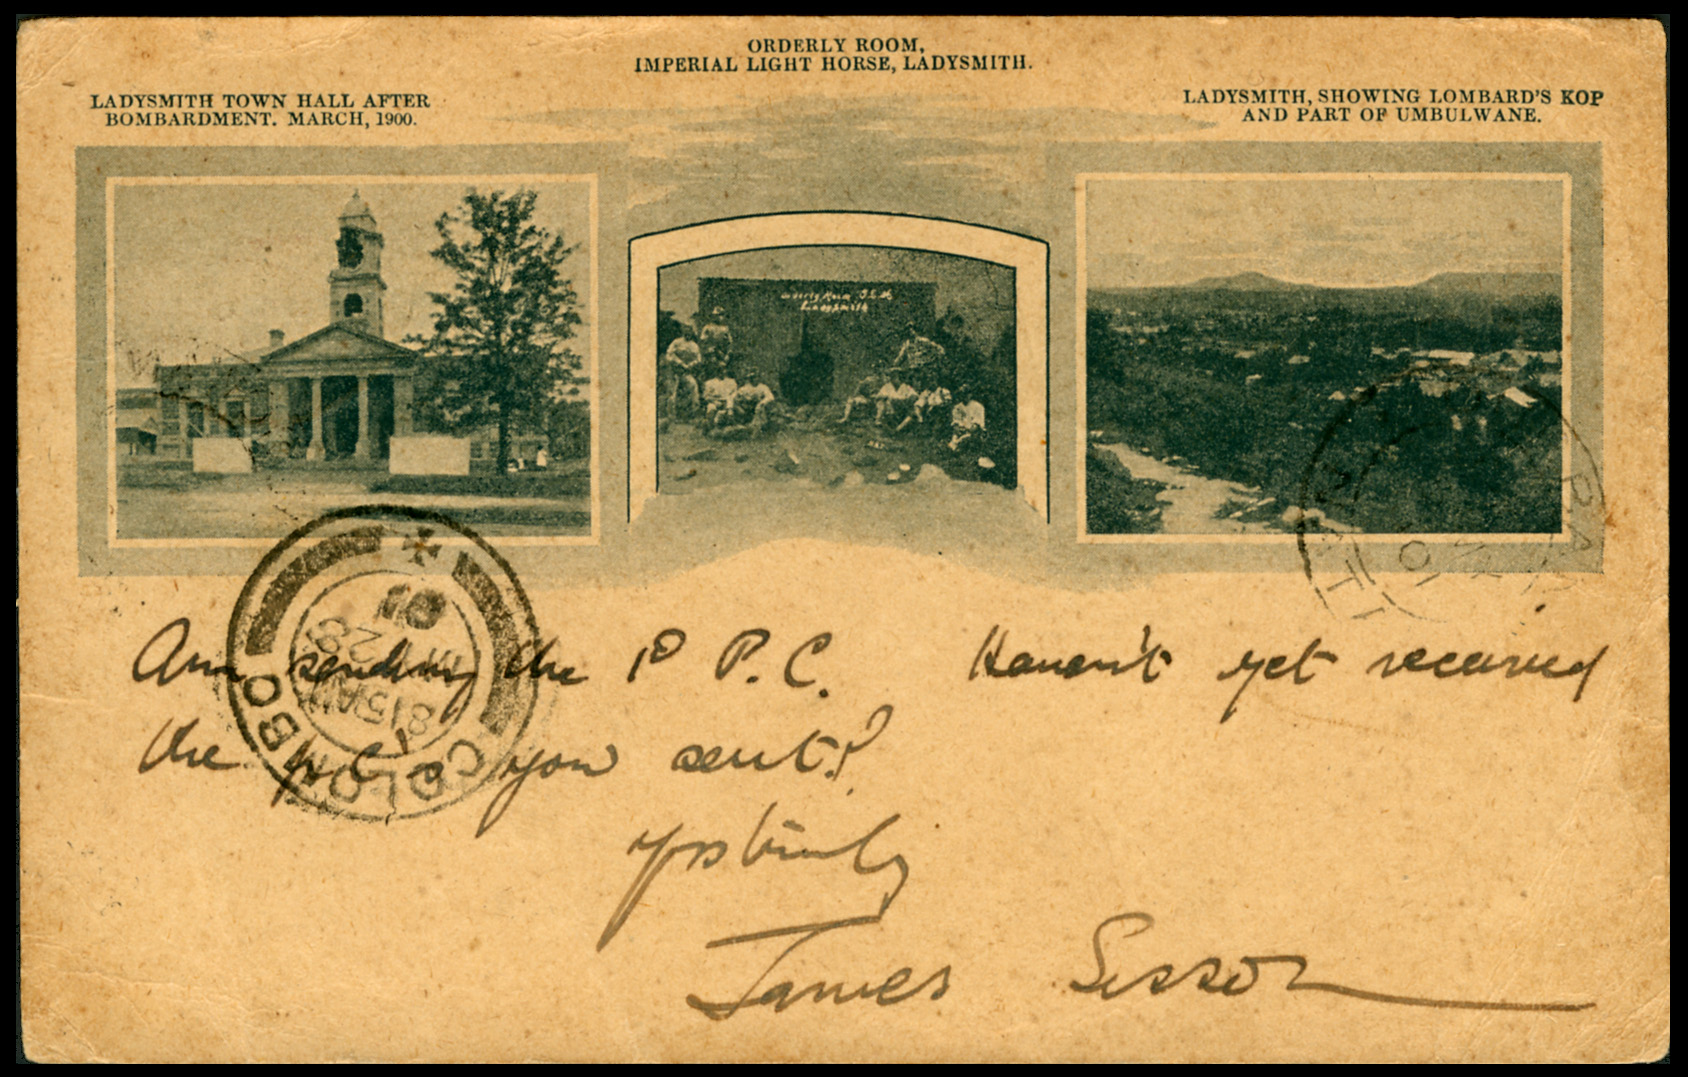 ORDERLY ROOM,
IMPERIAL LIGHT HORSE, LADYSMITH.
LADYSMITH TOWN HALL AFTER
BOMBARDMENT. MARCH, 1900.
LADYSMITH, SHOWING LOMBARD'S KOP
AND PART OF UMBULWANE.
Orderly Room I.L.H.
Ladysmith
Am sending the 1D P.C. Haven't yet received
the you sent?
yrs truly
James Sisson
COLOMBO
815AM
28
01